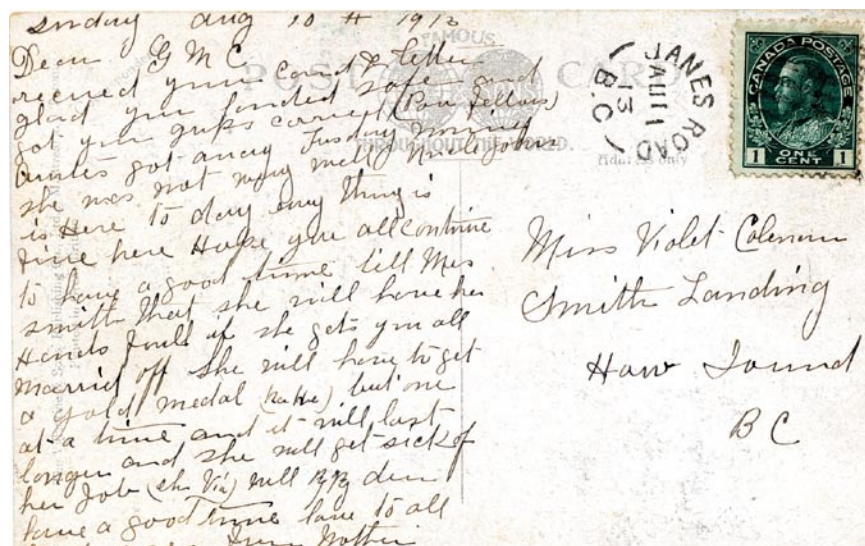 Sunday Aug 10th 1913
Dear G M C
recieved your card & letter
glad you landed safe and
got your grips correct (Poor fellows)
Aunties got away Tusday morning
she was not very well
is Here to day evry thing is
fine here Hope you all continue
to have a good time tell Mrs
smith that she will have her
Hands full if she gets you all
married off she will have to get
a gold medal (ha ha) but one
at a time and it will last
longer and she will get sick of
her Job (eh Vi) will By By dear
have a good time love to all
Mother
FAMOUS
POST CARD
THROUGHOUT THE WORLD.
Address only
JANES ROAD
AU 11
13
B.C
CANADA POSTAGE
1 ONE CENT 1
Miss Violet Coleman
Smith Landing
How Sound
B C